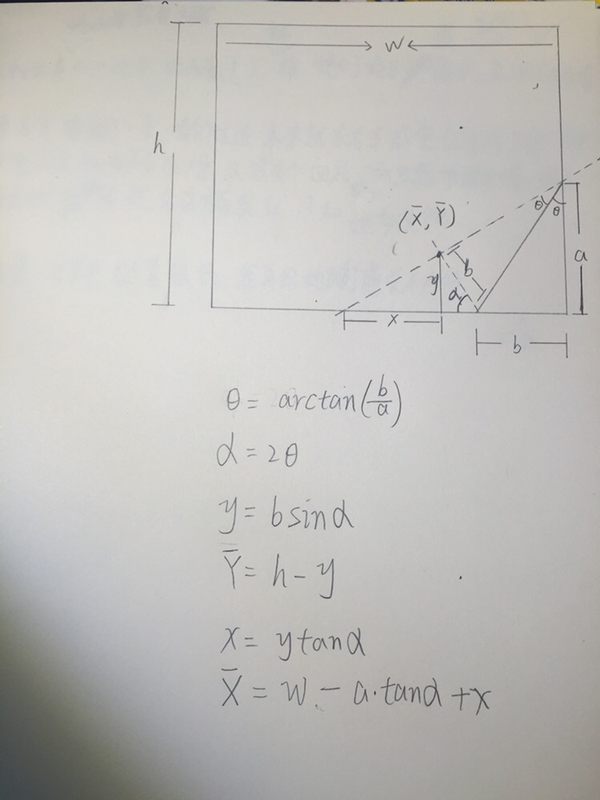 → W ←
h
(X̄, Ȳ)
θ θ
a
b
y
α
x
b
θ = arctan(b/a)
α = 2θ
y = b sinα
Ȳ = h - y
x = y tanα
X̄ = W - a·tanα + x